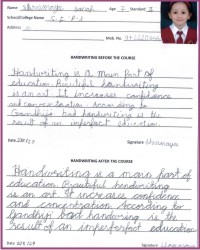 Name Age 7 Standard
School/College Name S.E.P.S
Address
Mob. No.
HANDWRITING BEFORE THE COURSE
Handwriting is a main part of
education. Beautiful handwriting
is an art. It increases confidence
and concentration. According to
Gandhiji bad handwriting is the
result of an imperfect education.
Date Signature
HANDWRITING AFTER THE COURSE
Handwriting is a main part of
education. Beautiful handwriting
is an art. It increases confidence
and concentration. According to
Gandhiji bad handwriting is the
result of an imperfect education
Date Signature